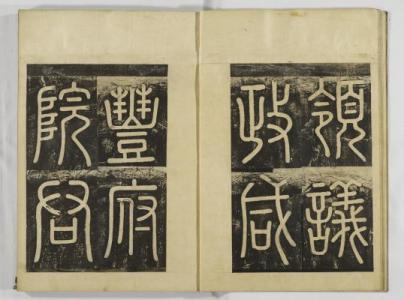 領議
政咸
豐府
院君